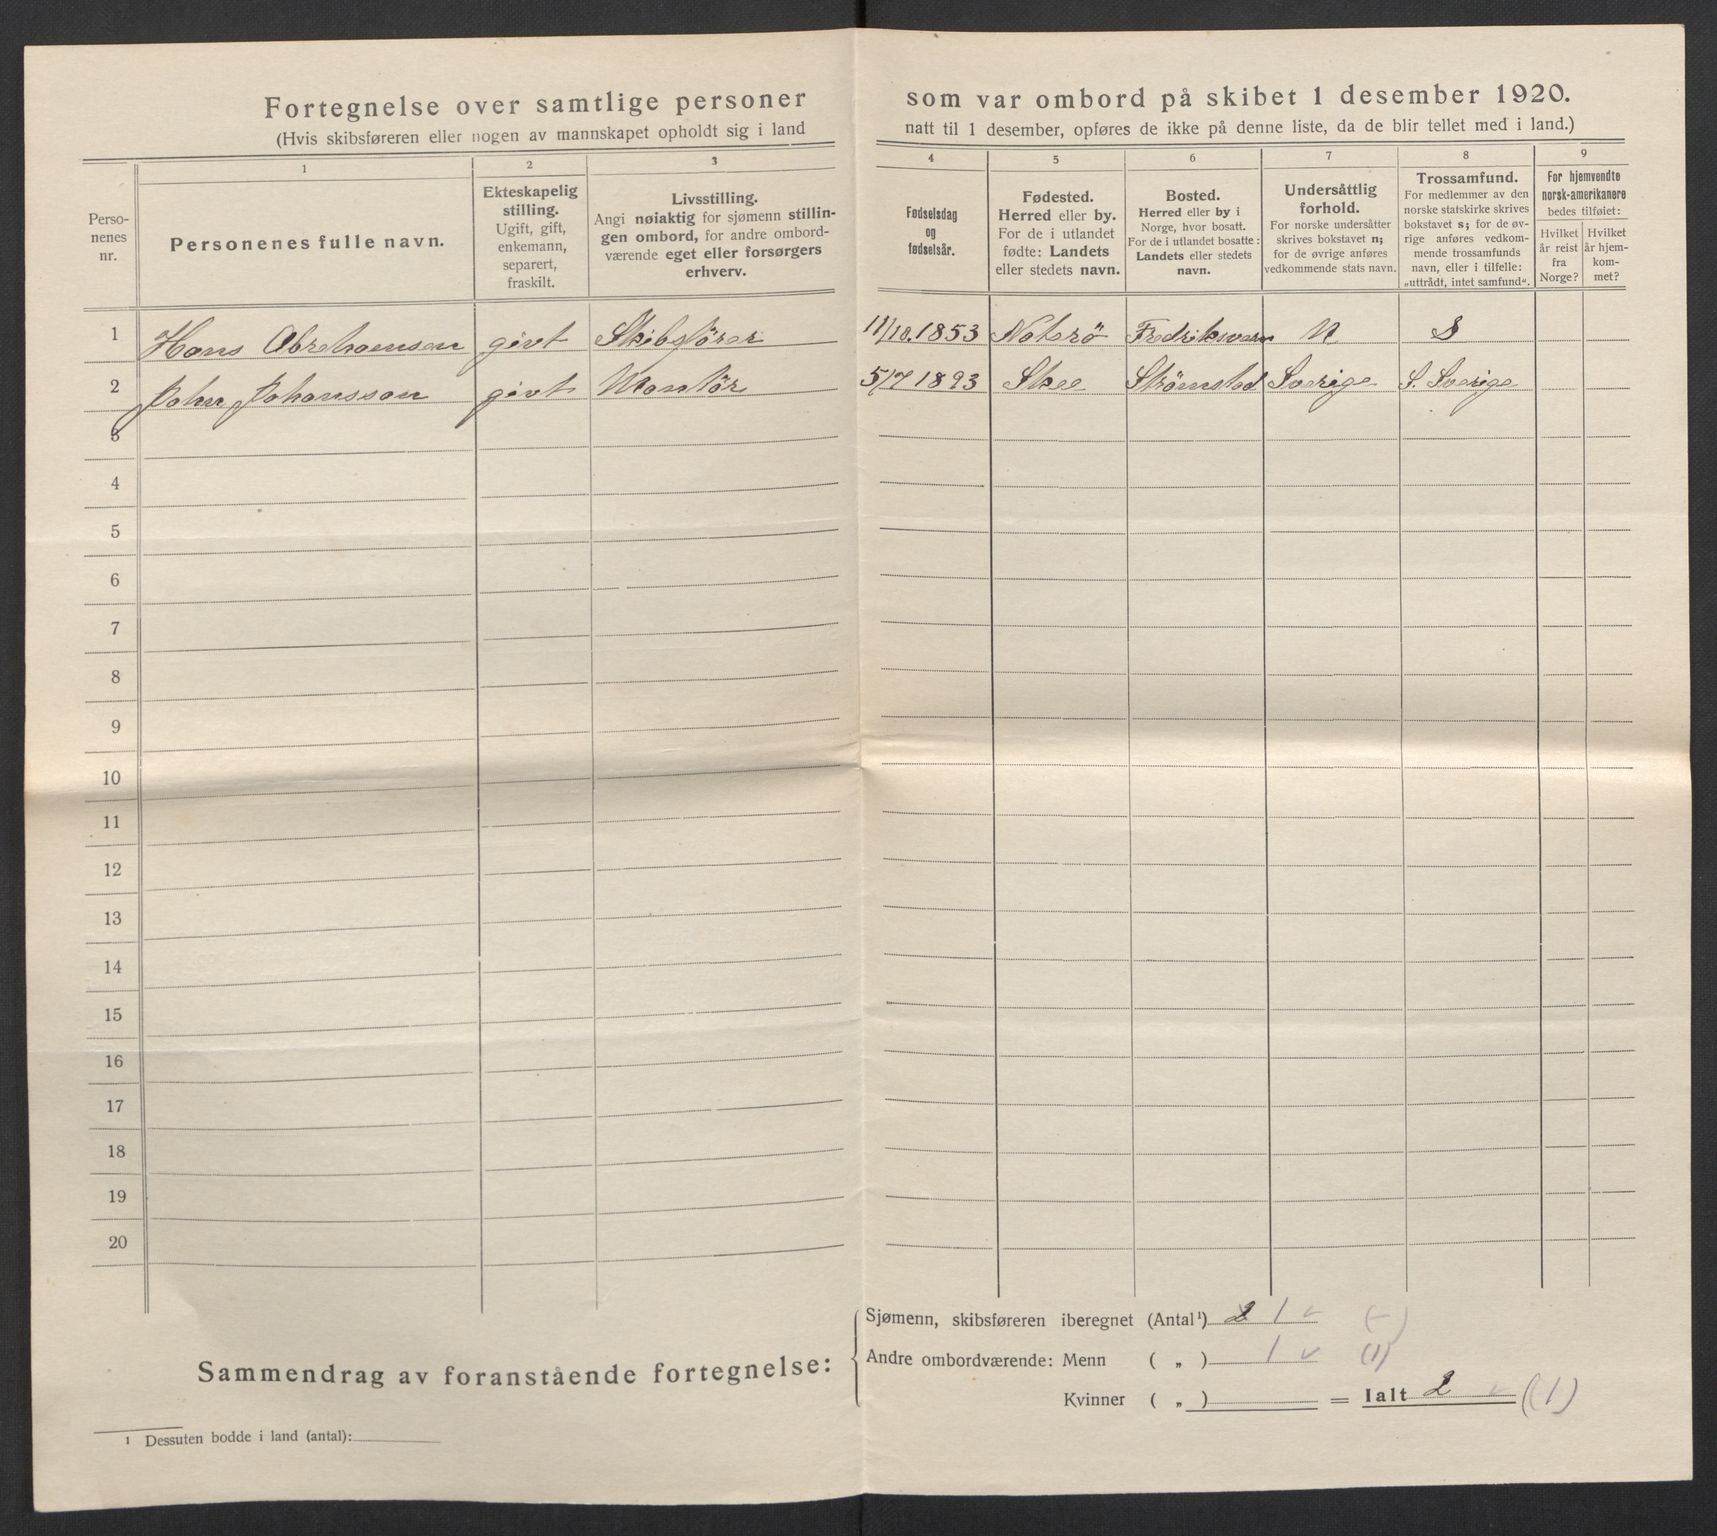 Fortegnelse over samtlige personer som var ombord på skibet 1 desember 1920.
(Hvis skibsføreren eller nogen av mannskapet opholdt sig i land natt til 1 desember, opføres de ikke på denne liste, da de blir tellet med i land.)
Perso-
nenes
nr.
1
Personenes fulle navn.
2
Ekteskapelig
stilling.
Ugift, gift,
enkemann,
separert,
fraskilt.
3
Livsstilling.
Angi nøiaktig for sjømenn stillin-
gen ombord, for andre ombord-
værende eget eller forsørgers
erhverv.
4
Fødselsdag
og
fødselsår.
5
Fødested.
Herred eller by.
For de i utlandet
fødte: Landets
eller stedets navn.
6
Bosted.
Herred eller by i
Norge, hvor bosatt.
For de i utlandet bosatte:
Landets eller stedets
navn.
7
Undersåttlig
forhold.
For norske undersåtter
skrives bokstavet n;
for de øvrige anføres
vedkommende stats navn.
8
Trossamfund.
For medlemmer av den
norske statskirke skrives
bokstavet s; for de øv-
rige anføres vedkom-
mende trossamfunds
navn, eller i tilfelle:
„uttrådt, intet samfund“.
9
For hjemvendte
norsk-amerikanere
bedes tilføiet:
Hvilket
år reist
fra
Norge?
Hvilket
år hjem-
kom-
met?
1 Hans Abrehamsen givt Skibsförer 11/10.1853 Noterö Fredriksværn N S
2 John Johansson givt Montör 5/7 1893 Skee Strömstad Sverige S. Sverige
3
4
5
6
7
8
9
10
11
12
13
14
15
16
17
18
19
20
Sammendrag av foranstående fortegnelse:
Sjømenn, skibsføreren iberegnet (Antal¹) 2 1 (-)
Andre ombordværende: Menn ( „ ) 1 (1)
Kvinner ( „ ) = Ialt 2 (1)
1 Dessuten bodde i land (antal):